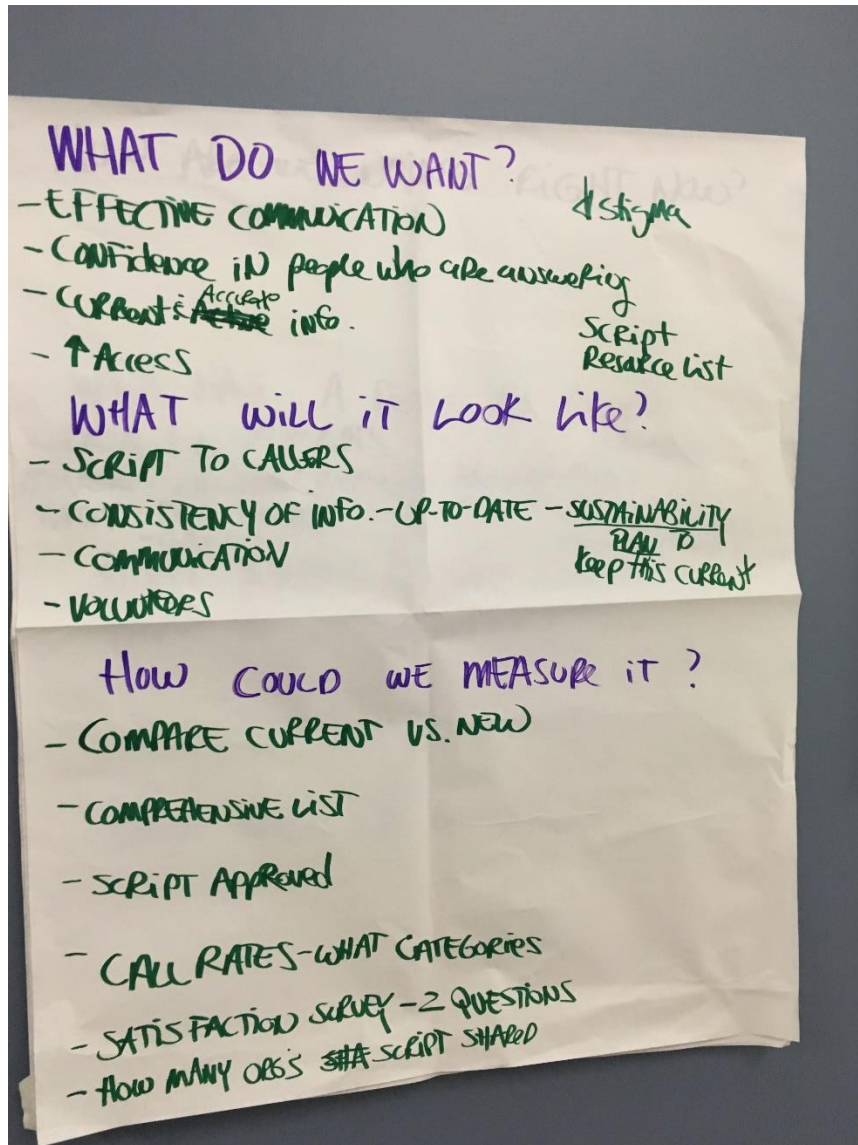 WHAT DO WE WANT?
- EFFECTIVE COMMUNICATION
↓ stigma
- CONFidence iN people who are answering
- CURRENT & Accurate info.
- ↑ Access
Script
Resource List
WHAT WILL iT LOOK Like?
- SCRiPT TO CALLERS
- CONSiSTENCY OF iNFO. - UP-TO-DATE - SUSTAiNABiLiTY
PLAN TO
keep this CURRENT
- COMMUNiCATiON
- VOLUNTEERS
HOW COULD WE MEASURE iT?
- COMPARE CURRENT VS. NEW
- COMPREHENSiVE LiST
- SCRiPT APPRoved
- CALL RATES - WHAT CATEGORiES
- SATiSFACTiON SURVEY - 2 QUESTiONS
- HOW MANY ORG'S SCRiPT SHARED